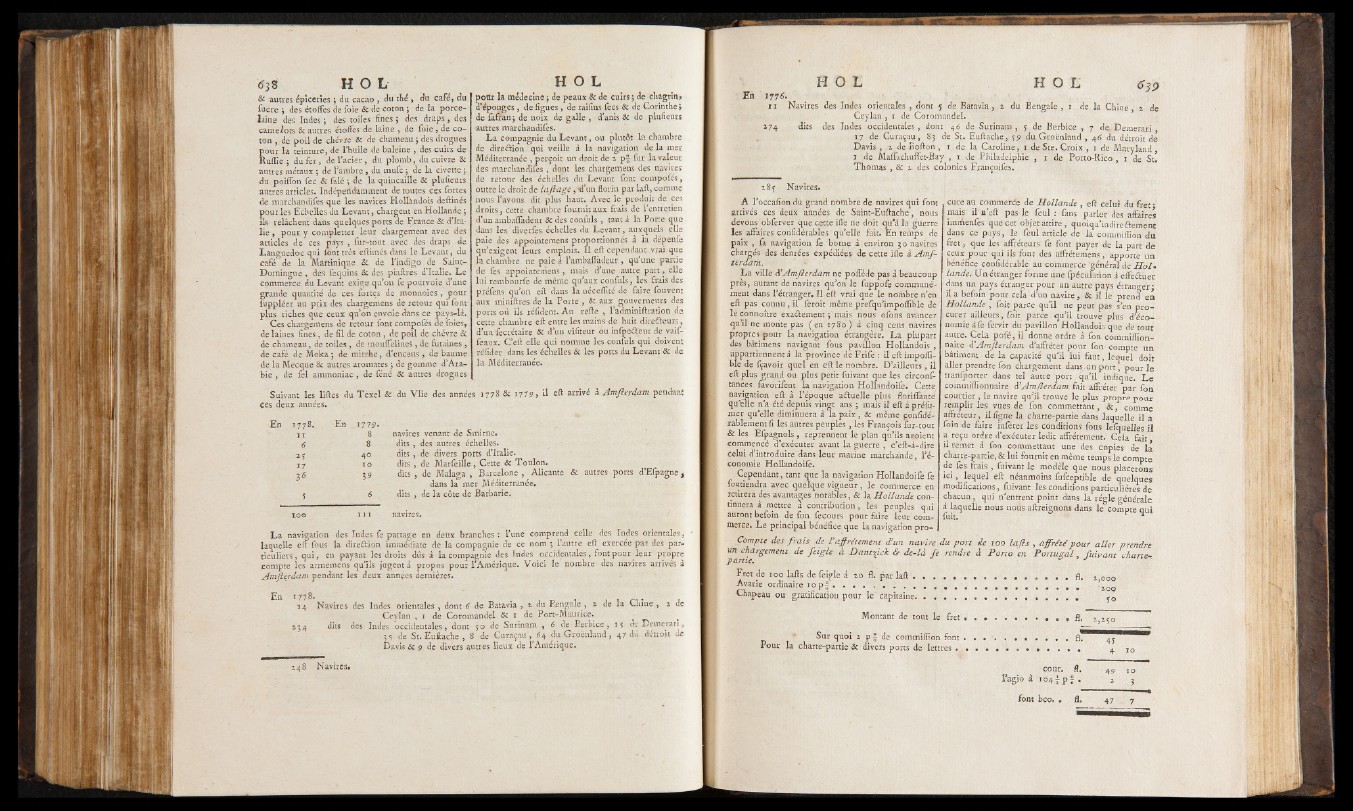 638 HOL HOL
& autres épiceries ; du cacao, du thé, du café, du
sucre ; des étoffes de soie & de coton ; de la porce-
laine des Indes ; des toiles fines ; des draps, des
camelots & autres étoffes de laine, de soie, de co-
ton, de poil de chèvre & de chameau ; des drogues
pour la teinture, de l'huile de baleine, des cuirs de
Russie ; du fer, de l'acier, du plomb, du cuivre &
autres métaux ; de l'ambre, du musc ; de la civette ;
du poisson sec & salé ; de la quincaille & plusieurs
autres articles. Indépendamment de toutes ces sortes
de marchandises que les navires Hollandois destinés
pour les Echelles du Levant, chargent en Hollande ;
ils relâchent dans quelques ports de France & d'Ita-
lie, pour y completter leur chargement avec des
articles de ces pays, sur-tout avec des draps de
Languedoc qui sont très estimés dans le Levant, du
café de la Martinique & de l'indigo de Saint-
Domingue, des sequins & des piastres d'Italie. Le
commerce du Levant exige qu'on se pourvoie d'une
grande quantité de ces sortes de monnoies, pour
suppléer au prix des chargemens de retour qui sont
plus riches que ceux qu'on envoie dans ce pays-là.
Ces chargemens de retour sont composés de soies,
de laines fines, de fil de coton, de poil de chèvre &
de chameau, de toiles, de mousselines, de futaines,
de café de Moka ; de mirrhe, d'encens, de baume
de la Mecque & autres aromates ; de gomme d'Ara-
bie, de sel ammoniac, de séné & autres drogues
pour la médecine ; de peaux & de cuirs ; de chagrin,
d'éponges, de figues, de raisins secs & de Corinthe ;
de saffran ; de noix de galle, d'anis & de plusieurs
autres marchandises.
La compagnie du Levant, ou plutôt la chambre
de direction qui veille à la navigation de la mer
Méditerranée, perçoit un droit de 2 p° sur la valeur
des marchandises, dont les chargemens des navires
de retour des échelles du Levant sont composés,
outre le droit de lastage, d'un florin par last, comme
nous l'avons dit plus haut. Avec le produit de ces
droits, cette chambre fournit aux frais de l'entretien
d'un ambassadeur & des consuls, tant à la Porte que
dans les diverses échelles du Levant, auxquels elle
paie des appointemens proportionnés à la dépense
qu'exigent leurs emplois. Il est cependant vrai que
la chambre ne paie à l'ambassadeur, qu'une partie
de ses appointemens, mais d'une autre part, elle
lui rembourse de même qu'aux consuls, les frais des
présens qu'on est dans la nécessité de faire souvent
aux ministres de la Porte, & aux gouverneurs des
ports où ils résident. Au reste, l'administration de
cette chambre est entre les mains de huit directeurs,
d'un secrétaire & d'un visiteur ou inspecteur de vais-
seaux. C'est elle qui nomme les consuls qui doivent
résider dans les échelles & les ports du Levant & de
la Méditerranée.
Suivant les listes du Texel & du Vlie des années 1778 & 1779, il est arrivé à Amsterdam pendant
ces deux années.
En 1778. En 1779.
11 8 navires venant de Smirne.
6 8 dits, des autres échelles.
25 40 dits, de divers ports d'Italie.
17 10 dits, de Marseille, Cette & Toulon.
36 39 dits, de Malaga, Barcelone, Alicante & autres ports d'Espagne,
dans la mer Méditerranée.
5 6 dits, de la côte de Barbarie.
100 111 navires.
La navigation des Indes se partage en deux branches : l'une comprend celle des Indes orientales,
laquelle est sous la direction immédiate de la compagnie de ce nom ; l'autre est exercée par des par-
ticuliers, qui, en payant les droits dûs à la compagnie des Indes occidentales, font pour leur propre
compte les armemens qu'ils jugent à propos pour l'Amérique. Voici le nombre des navires arrivés à
Amsterdam pendant les deux années dernières.
En 1778.
14 Navires des Indes orientales, dont 6 de Batavia, 2 du Bengale, 2 de la Chine, 2 de
Ceylan, 1 de Coromandel & 1 de Port-Maurice.
234 dits des Indes occidentales, dont 50 de Surinam, 6 de Berbice, 15 de Demerari,
35 de St. Eustache, 8 de Curaçau, 64 du Groenland, 47 du détroit de
Davis & 9 de divers autres lieux de l'Amérique.
248 Navires.
HOL HOL 639
En 1776.
11 Navires des Indes orientales, dont 5 de Batavia, 2 du Bengale, 1 de la Chine, 2 de
Ceylan, 1 de Coromandel.
274 dits des Indes occidentales, dont 46 de Surinam, 5 de Berbice, 7 de Demerari,
17 de Curaçau, 83 de St. Eustache, 59 du Groenland, 46 du détroit de
Davis, 2 de Boston, 1 de la Caroline, 1 de Ste. Croix, 1 de Maryland,
1 de Massachusset-Bay, 1 de Philadelphie, 1 de Porto-Rico, 1 de St.
Thomas, & 2 des colonies Françoises.
285 Navires.
A l'occasion du grand nombre de navires qui sont
arrivés ces deux années de Saint-Eustache, nous
devons observer que cette isle ne doit qu'à la guerre
les affaires considérables qu'elle fait. En temps de
paix, sa navigation se borne à environ 30 navires
chargés des denrées expédiées de cette isle à Ams-
terdam.
La ville d'Amsterdam ne possède pas à beaucoup
près, autant de navires qu'on le suppose communé-
ment dans l'étranger. Il est vrai que le nombre n'en
est pas connu, il seroit même presqu'impossible de
le connoître exactement ; mais nous osons avancer
qu'il ne monte pas (en 1780) à cinq cens navires
propres pour la navigation étrangère. La plupart
des bâtimens navigant sous pavillon Hollandois,
appartiennent à la province de Frise : il est impossi-
ble de sçavoir quel en est le nombre. D'ailleurs, il
est plus grand ou plus petit suivant que les circons-
tances favorisent la navigation Hollandoise. Cette
navigation est à l'époque actuelle plus florissante
qu'elle n'a été depuis vingt ans ; mais il est à présu-
mer qu'elle diminuera à la paix, & même considé-
rablement si les autres peuples, les François sur-tout
& les Espagnols, reprennent le plan qu'ils avoient
commencé d'exécuter avant la guerre, c'est-à-dire
celui d'introduire dans leur marine marchande, l'é-
conomie Hollandoise.
Cependant, tant que la navigation Hollandoise se
soutiendra avec quelque vigueur, le commerce en
retirera des avantages notables, & la Hollande con-
tinuera à mettre à contribution, les peuples qui
auront besoin de son secours pour faire leur com-
merce. Le principal bénéfice que la navigation pro-
cure au commerce de Hollande, est celui du fret ;
mais il n'est pas le seul : sans parler des affaires
immenses que cet objet attire, quoiqu'indirectement
dans ce pays, le seul article de la commission du
fret, que les affréteurs se font payer de la part de
ceux pour qui ils font des affrétemens, apporte un
bénéfice considérable au commerce général de Hol-
lande. Un étranger forme une spéculation à effectuer
dans un pays étranger pour un autre pays étranger ;
il a besoin pour cela d'un navire, & il le prend en
Hollande, soit parce qu'il ne peut pas s'en pro-
curer ailleurs, soit parce qu'il trouve plus d'éco-
nomie à se servir du pavillon Hollandois que de tout
autre. Cela posé, il donne ordre à son commission-
naire d'Amsterdam d'affréter pour son compte un
bâtiment de la capacité qu'il lui faut, lequel doit
aller prendre son chargement dans un port, pour le
transporter dans tel autre port qu'il indique. Le
commissionnaire d'Amsterdam fait affréter par son
courtier, le navire qu'il trouve le plus propre pour
remplir les vues de son commettant, &, comme
affréteur, il signe la charte-partie dans laquelle il a
soin de faire insérer les conditions sous lesquelles il
a reçu ordre d'exécuter ledit affrétement. Cela fait,
il remet à son commettant une des copies de la
charte-partie, & lui fournit en même temps le compte
de ses frais, suivant le modèle que nous placerons
ici, lequel est néanmoins susceptible de quelques
modifications, suivant les conditions particulières de
chacun, qui n'entrent point dans la régle générale
à laquelle nous nous astreignons dans le compte qui
suit.
Compte des frais de l'affrétement d'un navire du port de 100 lasts, affrété pour aller prendre
un chargement de seigle à Dantzick & de-là se rendre à Porto en Portugal, suivant charte-
partie.
Fret de 100 lasts de seigle à 20 fl. par last . . . . . fl. 2,000
Avarie ordinaire 10 p° . . . . . 200
Chapeau ou gratification pour le capitaine. . . . . . 50
Montant de tout le fret . . . . . fl. 2,250
Sur quoi 2 p° de commission font . . . . . fl. 45
Pour la charte-partie & divers ports de lettres . . . . . 4 10
cour. fl. 49 10
l'agio à 104 ½ p° . 2 3
font bco. . fl. 47 7